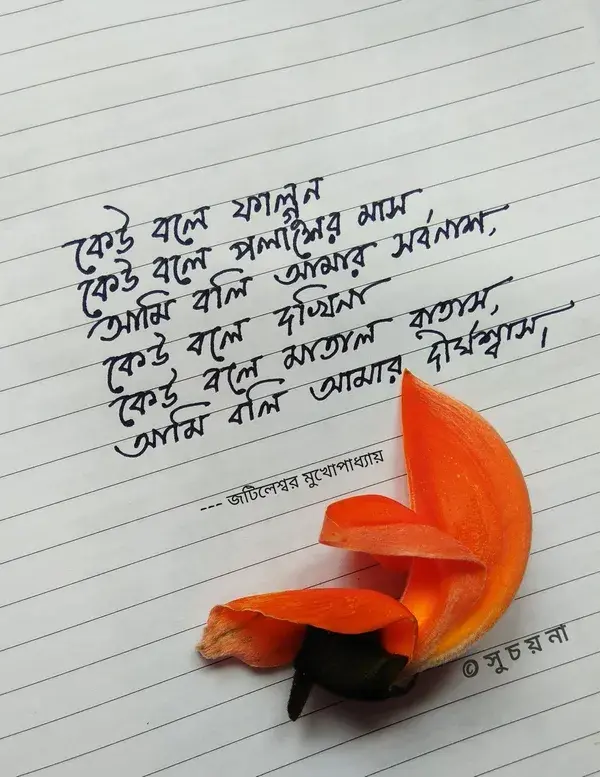 কেউ বলে ফাল্গুন
কেউ বলে পলাশের মাস
আমি বলি আমার সর্বনাশ,
কেউ বলে দখিনা
কেউ বলে মাতাল বাতাস,
আমি বলি আমার দীর্ঘশ্বাস।
--- জটিলেশ্বর মুখোপাধ্যায়
© সুচয়না